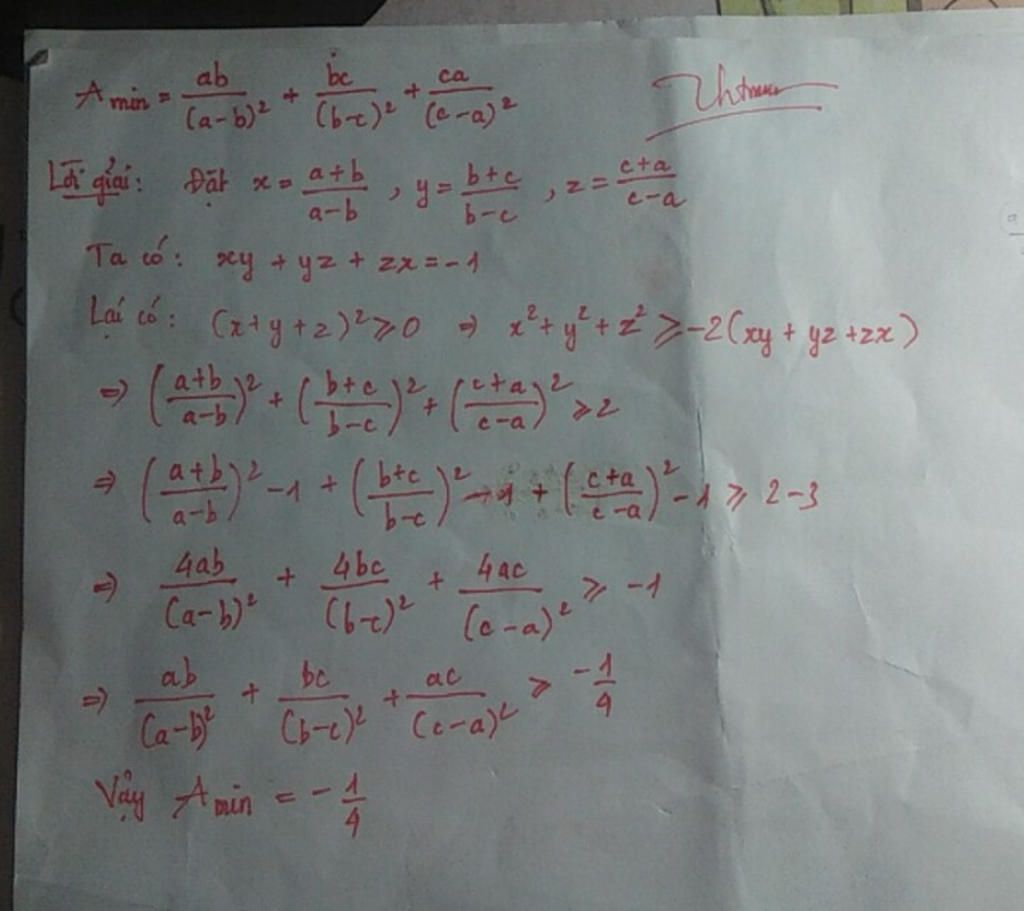 A min = ab/(a-b)² + bc/(b-c)² + ca/(c-a)²
Lời giải: Đặt x = a+b/a-b , y = b+c/b-c , z = c+a/c-a
Ta có: xy + yz + zx = -1
Lại có: (x+y+z)² ≥ 0 ⇒ x² + y² + z² ≥ -2(xy + yz + zx)
⇒ (a+b/a-b)² + (b+c/b-c)² + (c+a/c-a)² ≥ 2
⇒ (a+b/a-b)² - 1 + (b+c/b-c)² - 1 + (c+a/c-a)² - 1 ≥ 2-3
⇒ 4ab/(a-b)² + 4bc/(b-c)² + 4ac/(c-a)² ≥ -1
⇒ ab/(a-b)² + bc/(b-c)² + ac/(c-a)² ≥ -1/4
Vậy A min = -1/4